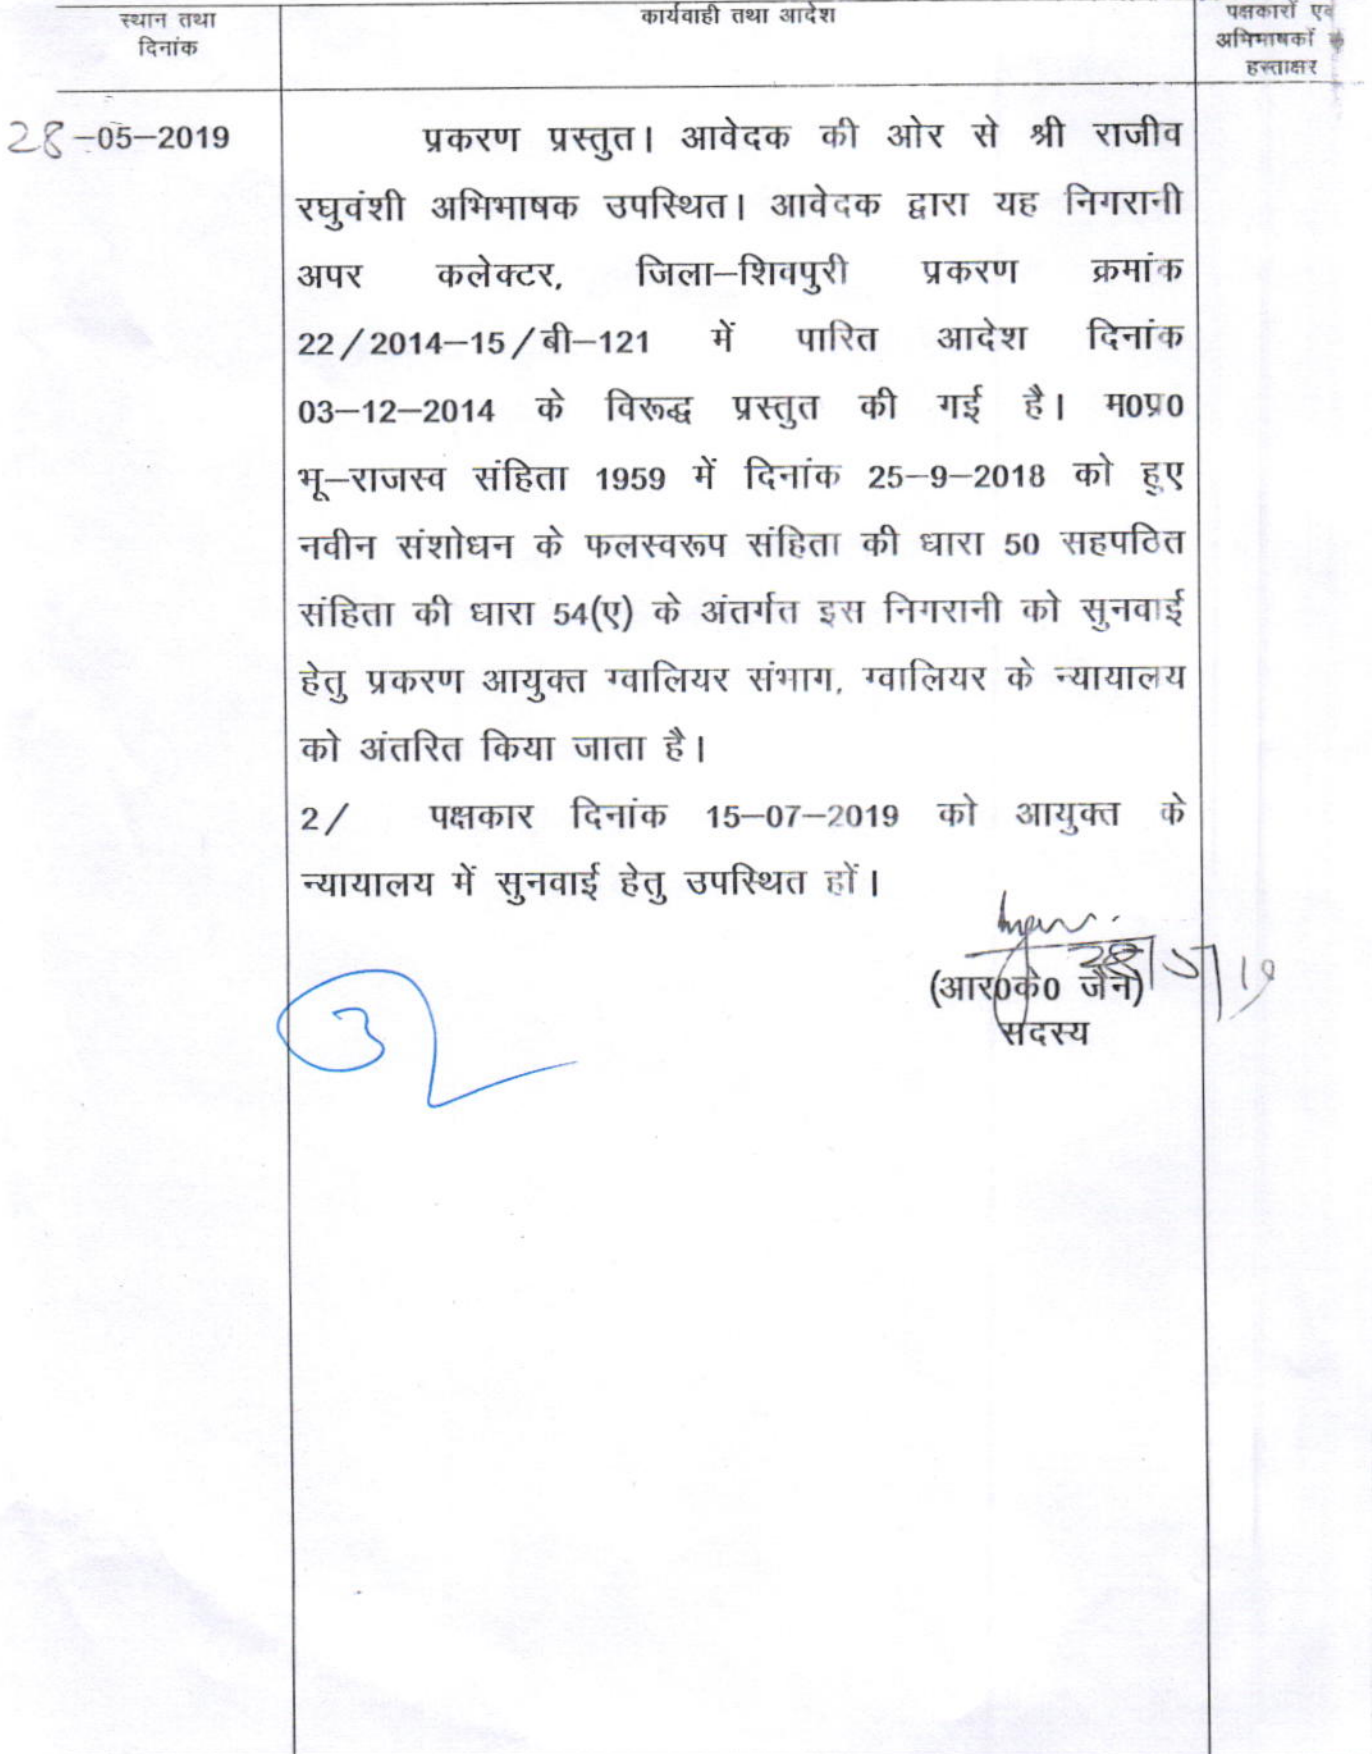 स्थान तथा
दिनांक
कार्यवाही तथा आदेश
पक्षकारों एवं
अभिभाषकों के
हस्ताक्षर
28-05-2019
प्रकरण प्रस्तुत। आवेदक की ओर से श्री राजीव
रघुवंशी अभिभाषक उपस्थित। आवेदक द्वारा यह निगरानी
अपर कलेक्टर, जिला-शिवपुरी प्रकरण क्रमांक
22/2014-15/बी-121 में पारित आदेश दिनांक
03-12-2014 के विरूद्ध प्रस्तुत की गई है। म0प्र0
भू-राजस्व संहिता 1959 में दिनांक 25-9-2018 को हुए
नवीन संशोधन के फलस्वरूप संहिता की धारा 50 सहपठित
संहिता की धारा 54(ए) के अंतर्गत इस निगरानी को सुनवाई
हेतु प्रकरण आयुक्त ग्वालियर संभाग, ग्वालियर के न्यायालय
को अंतरित किया जाता है।
2/ पक्षकार दिनांक 15-07-2019 को आयुक्त के
न्यायालय में सुनवाई हेतु उपस्थित हों।
28/5/19
(आर0के0 जैन)
सदस्य